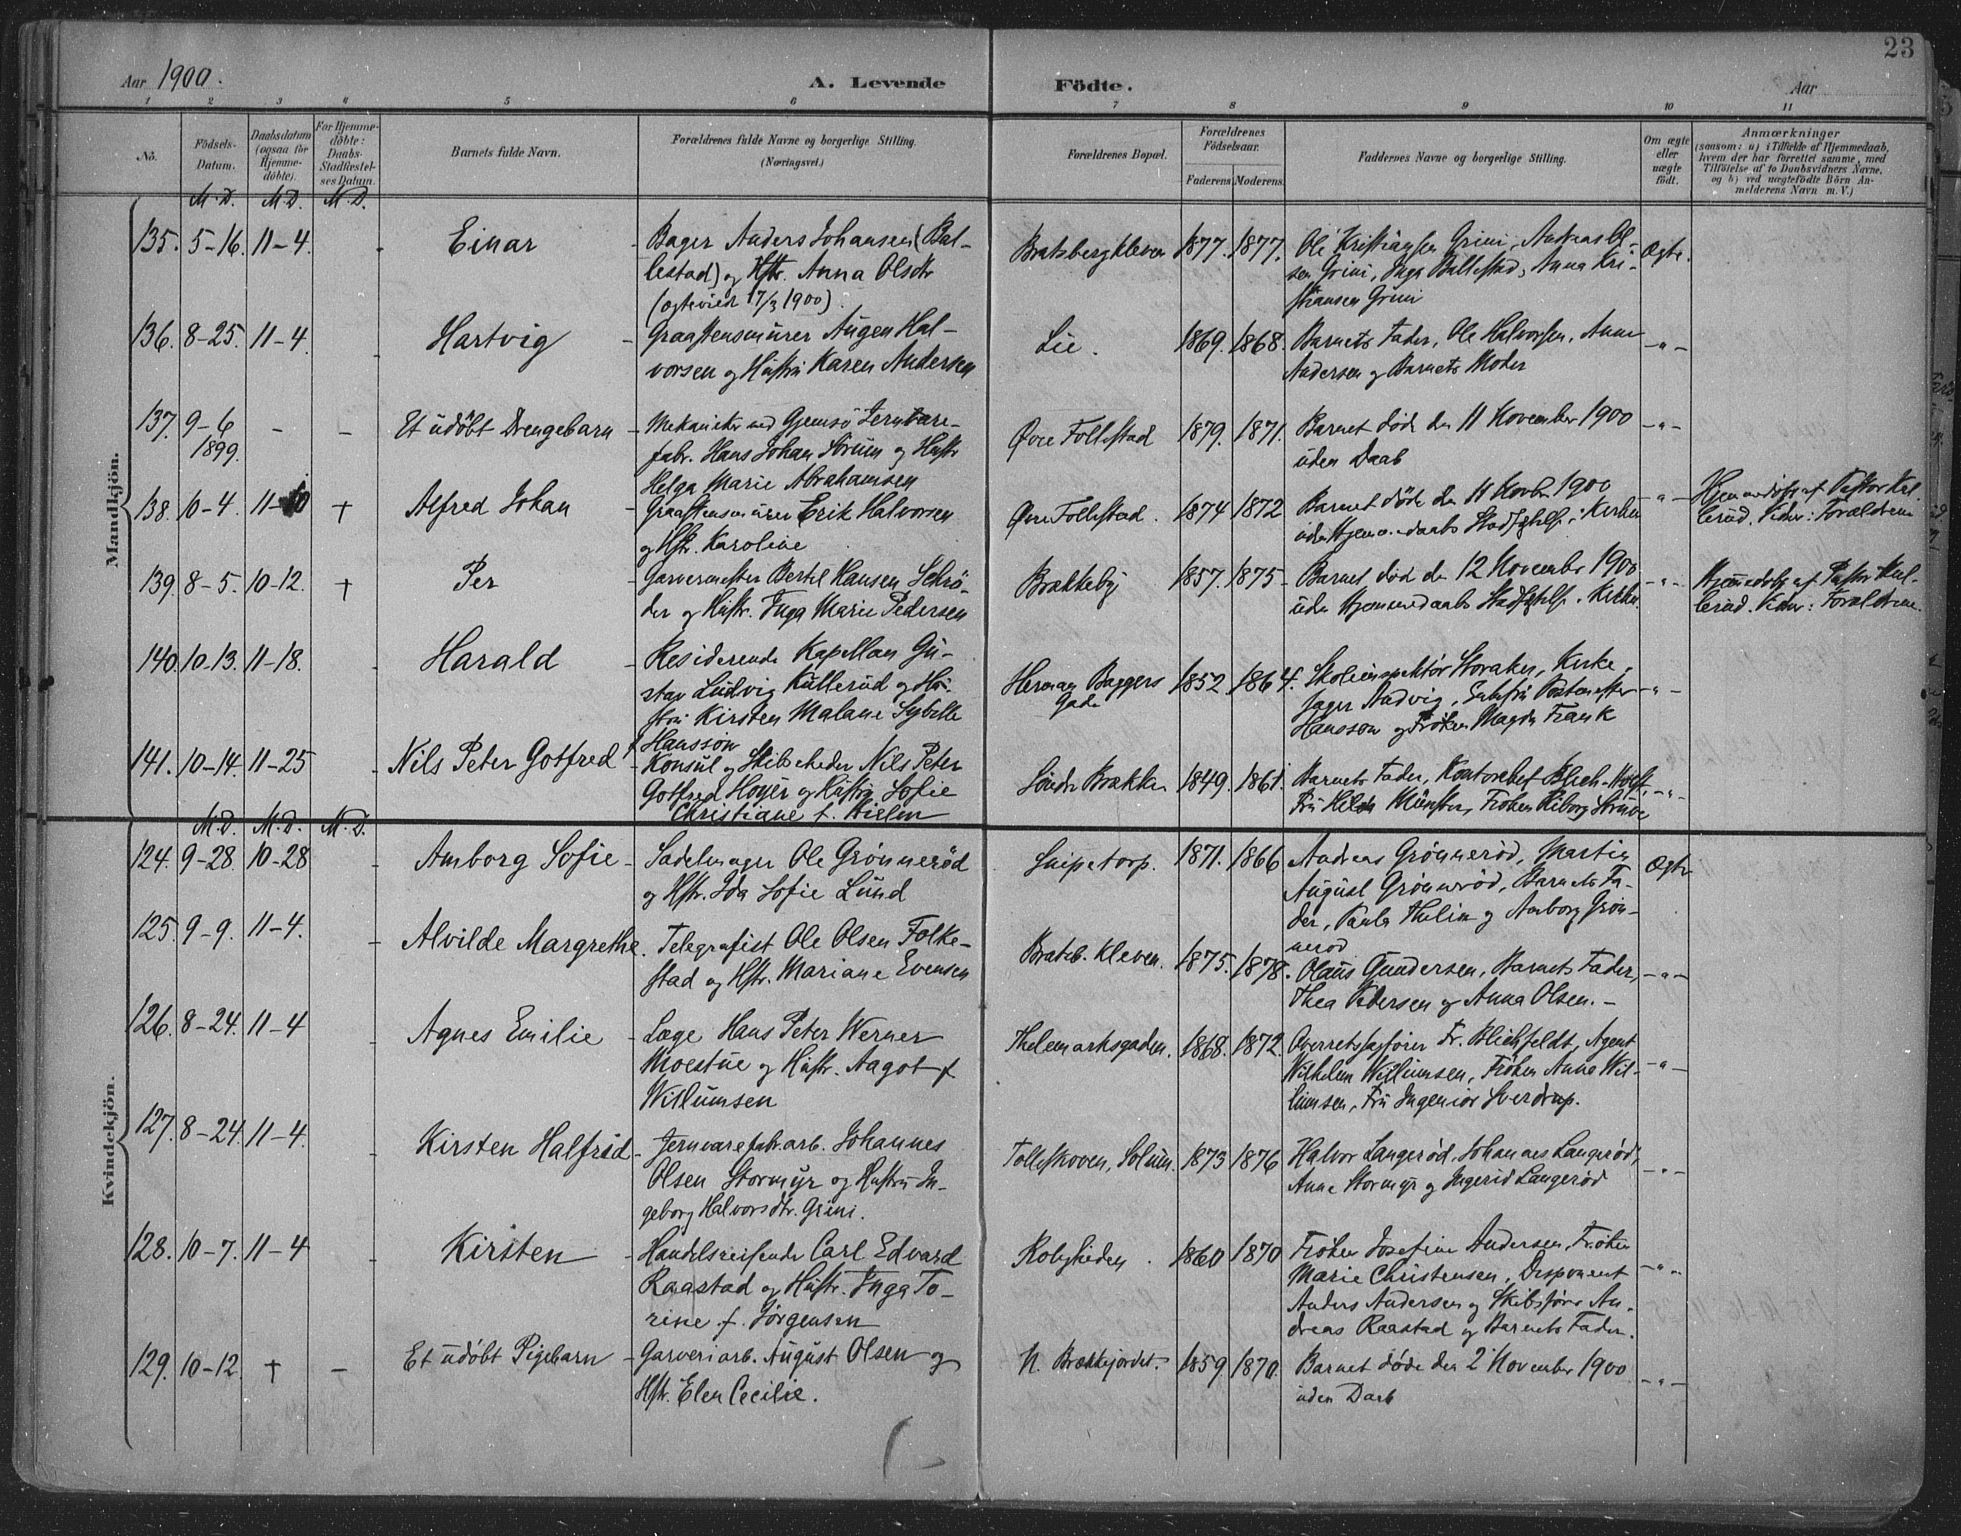 23
Aar 1900.
A. Levende Födte.
Aar
1 2 3 4 5 6 7 8 9 10 11
No.
Födsels-Datum.
Daabsdatum (ogsaa for Hjemme-döbte).
For Hjemme-döbte: Daabs-Stadfæstel-ses Datum.
Barnets fulde Navn.
Forældrenes fulde Navne og borgerlige Stilling. (Næringsvei.)
Forældrenes Bopæl.
Forældrenes Födselsaar.
Faderens. Moderens.
Faddernes Navne og borgerlige Stilling.
Om ægte eller uægte födt.
Anmærkninger
(saasom: a) i Tilfælde af Hjemmedaab, hvem der har forrettet samme, med Tilföielse af to Daabsvidners Navne, og b) ved uægtefödte Börn An-melderens Navn m. V.)
M. D. M. D. M. D.
Mandkjön.
135. 5-16. 11-4. - Einar - Bager Anders Johansen (Bal-
lestad) og Hstr. Anna Olsdtr
(ægteviet 17/3 1900).
Bratsbergkleven 1877. 1877. Ole Kristiansen Grini, Andreas Ol-
sen Grini, Inga Ballestad, Anna Kri-
stiansen Grini
Ægte.
136. 8-25. 11-4. - Hartvig - Graastensmurer Augen Hal-
vorsen og Hustru Karen Andersen
Lie. 1869. 1868. Barnets Fader, Ole Halvorsen, Anne
Andersen og Barnets Moder
-"-
137. 9-6 1899. - - Et udöbt Drengebarn - Mekaniker ved Gjemsö Jernvare-
fabr. Hans Johan Sörum og Hustr
Helga Marie Abrahamsen
Øvre Follestad 1879. 1871. Barnet døde den 11 November 1900
uden Daab
-"-
138. 10-4. + Alfred Johan - Graastensmurer Erik Halvorsen
og Hstr. Karoline
Øvre Follestad. 1874 1872 Barnet døde den 11 Novbr 1900
uden Hjemmedaabs i Kirken
-"-
Hjemmedöbt af Pastor Kul-
lerud. Vidner: Forældrene
139. 8-5. 10-12. + Per - Garvermester Bertel Hansen Schrö-
der og Hustr. Inga Marie Pedersen
Brækkeby 1857. 1875 - Barnet død den 12 November 1900
uden Hjemmedaabs i Kirken.
-"-
Hjemmedöbt af Pastor Kul-
lerud. Vidner: Forældrene.
140. 10-13. 11-18. - Harald - Residerende Kapellan Gu-
stav Ludvig Kullerud og Hu-
stru Kirsten Malene Sybille
Hansson
Herman Baggers
Gade
1852. 1864. Skoleinspektör Storaker, Kirke,
Jager Andvig, Postmester
Hansson og Fröken Magda Frank
-"-
141. 10-14. 11-25 - Nils Peter Gotfred - Konsul og Skibsrheder Nils Peter
Gotfred Höyer og Hustru Sofie
Christiane f. Nielsen
Söndre Brække 1849. 1861. Barnets Fader, Kontorchef Blich-Holst,
Fru Hilda Münster, Fröken Viborg Struve
-"-
M. D. M. D. M. D.
Kvindekjön.
124. 9-28. 10-28 - Amborg Sofie - Sadelmager Ole Grønnerød
og Hstr. Ida Sofie Lund
Snipetorp. 1871. 1866 Andreas Grønnerød, Martin
August Grønnerød, Barnets Fa-
der, Paula Thelin og Amborg Grøn-
nerød
Ægte
125. 9-9. 11-4. - Alvilde Margrethe. Telegrafist Ole Olsen Folke-
stad og Hstr. Mariane Evensen
Bratsb. kleven. 1875. 1878. Olaus Gundersen, Barnets Fader,
Thea Pedersen og Anna Olsen. -
-"-
126. 8-24. 11-4 - Agnes Emilie - Læge Hans Peter Werner
Moestue og Hustr. Aagot f
Willumsen
Thelemarksgaden. 1868. 1872. Overretssagförer Fr. Blichfeldt, Agent
Wilhelm Willumsen, Fröken Anna Wil-
lumsen, Fru Ingeniör Sverdrup.
-"-
127. 8-24. 11-4. - Kirsten Halfrid - Jernvarefabr.arb. Johannes
Olsen Stormyr og Hustru In-
geborg Halvorsdtr. Grini.
Tollefskoven, Solum. 1873 1876 Halvor Langerød, Johannes Langerød,
Anne Stormyr og Ingerid Langerød
-"-
128. 10-7. 11-4 - Kirsten - Handelsreisende Carl Edvard
Raastad og Hustr. Inga To-
rine f. Jörgensen
Roligheden. 1860 1870 Fröken Josefine Andersen, Fröken
Marie Christensen, Disponent
Anders Andersen og Skibsförer An-
dreas Raastad og Barnets Fader.
-"-
129. 10-12. + - Et udöbt Pigebarn - Garveriarb. August Olsen og
Hstr. Elen Cecilie.
N. Brækkejordet. 1859 1870. Barnet døde den 2 November 1900
uden Daab
-"-